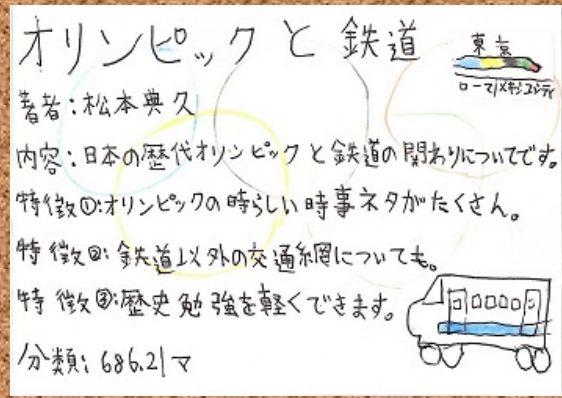 オリンピックと鉄道
東京
ローマ/メキシコシティ
著者:松本典久
内容:日本の歴代オリンピックと鉄道の関わりについてです。
特徴①:オリンピックの時らしい時事ネタがたくさん。
特徴②:鉄道以外の交通網についても。
特徴③:歴史勉強を軽くできます。
分類:686.21マ